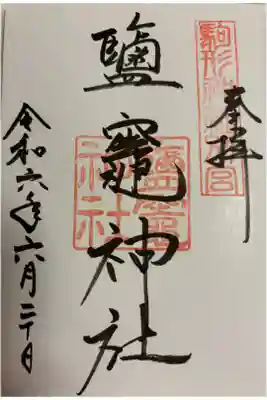 駒形神社
奉拝
鹽竈神社
鹽竈
神社
令和六年六月二十日